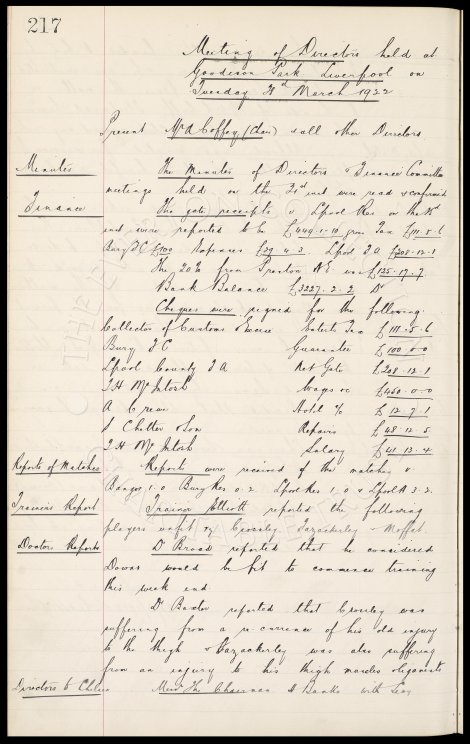 217
Meeting of Directors held at
Goodison Park Liverpool on
Tuesday March 1922
Present Mr A Coffey (Chair) & all other Directors
Minutes
The Minutes of Directors & Finance Committee
meetings held on the 21st inst were read & confirmed
Finance
The gate receipts v L'pool Res on the
inst were reported to be £449.1.10 gross Tax £111.5.6
Bury F C £100 Expenses £29.4.3 L'pool F A £208.12.1
The 20% from Preston N.E. was £125.17.7
Bank Balance £3227.2.2 Dr
Cheques were signed for the following
Collector of Customs & Excise Entert. Tax £111.5.6
Bury F C Guarantee £100.0.0
L'pool County F A Net Gate £208.12.1
T H McIntosh Wages &c £460.0.0
A Crewe Hotel a/c £12.7.1
& Son Repairs £48.12.5
T H McIntosh Salary £41.13.4
Reports of Matches
Reports were received of the matches v
Bangor 5.0 Bury Res 0.2 L'pool Res 1.0 & L'pool A 3.2
Trainers Report
Trainer Elliott reported the following
players unfit viz Crossley Fazackerley Moffat
Doctors Reports
Dr Broad reported that he considered
Downs would be fit to commence training
this week end
Dr Baxter reported that Crossley was
suffering from a re-currence of his old injury
to the thigh & Fazackerley was also suffering
from an injury to his thigh muscles
Directors to Chelsea
The Chairman & Banks with Secy